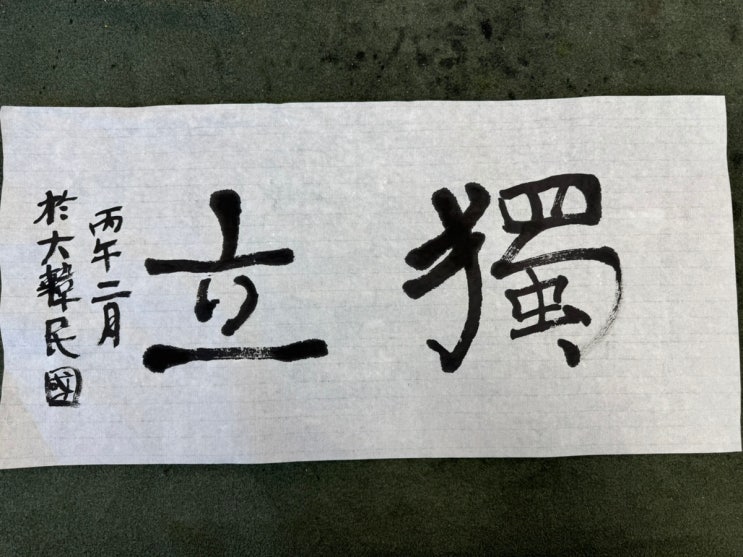 獨立
丙午二月
於大韓民國